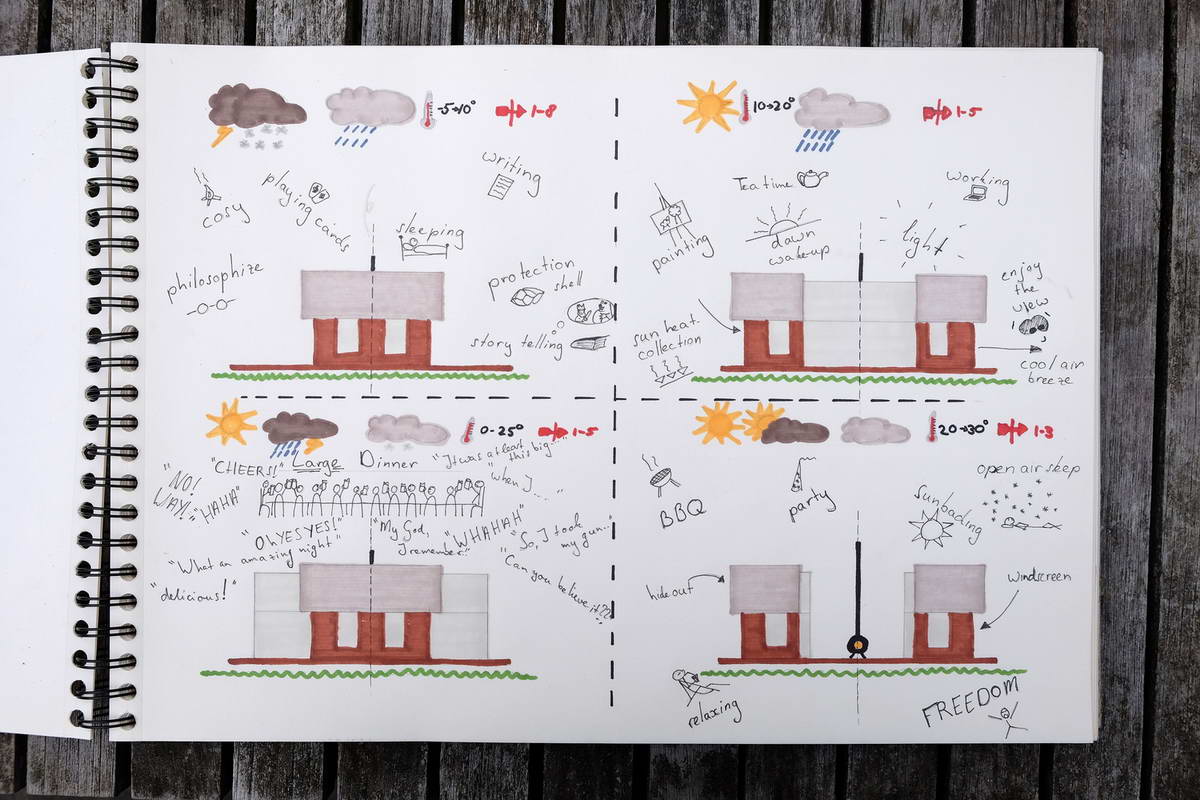 -5→10°
1-8
cosy
playing cards
writing
sleeping
philosophize
protection
shell
story telling
10→20°
1-5
painting
Tea time
dawn
wake-up
working
light
enjoy
the
view
sun heat
collection
cool air
breeze
0-25°
1-5
"NO!
WAY!"
"CHEERS!"
Large Dinner
"It was at least
this big..."
"HAHA"
"when I
....."
"Oh, YES YES!"
"My God,
I remember"
"WHAHAH"
"So, I took
my gun..."
"What an amazing night"
"delicious!"
"Can you believe it??
20→30°
1-3
BBQ
party
open air sleep
sunbading
hide out
windscreen
relaxing
FREEDOM